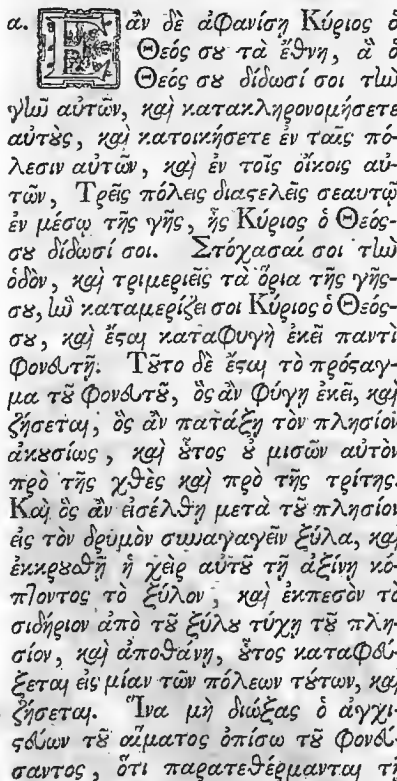 α. Ἐὰν δὲ ἀφανίση Κύριος ὁ
Θεός σου τὰ ἔθνη, ἃ ὁ
Θεός σου δίδωσί σοι τὴν
γῆν αὐτῶν, καὶ κατακληρονομήσετε
αὐτοὺς, καὶ κατοικήσετε ἐν ταῖς πό-
λεσιν αὐτῶν, καὶ ἐν τοῖς οἴκοις αὐ-
τῶν, Τρεῖς πόλεις διαστελεῖς σεαυτῷ
ἐν μέσῳ τῆς γῆς, ἧς Κύριος ὁ Θεός-
σου δίδωσί σοι. Στόχασαί σοι τὴν
ὁδὸν, καὶ τριμεριεῖς τὰ ὅρια τῆς γῆς-
σου, ἣν καταμερίζει σοι Κύριος ὁ Θεός-
σου, καὶ ἔσται καταφυγὴ ἐκεῖ παντὶ
φονευτῆ. Τοῦτο δὲ ἔσται τὸ πρόσταγ-
μα τοῦ φονευτοῦ, ὃς ἂν φύγη ἐκεῖ, καὶ
ζήσεται, ὃς ἂν πατάξη τὸν πλησίον
ἀκουσίως, καὶ οὗτος οὐ μισῶν αὐτὸν
πρὸ τῆς χθὲς καὶ πρὸ τῆς τρίτης.
Καὶ ὃς ἂν εἰσέλθη μετὰ τοῦ πλησίον
εἰς τὸν δρυμὸν συναγαγεῖν ξύλα, καὶ
ἐκκρουσθῆ ἡ χεὶρ αὐτοῦ τῆ ἀξίνη κό-
πτοντος τὸ ξύλον, καὶ ἐκπεσὸν τὸ
σιδήριον ἀπὸ τοῦ ξύλου τύχη τοῦ πλη-
σίον, καὶ ἀποθάνη, οὗτος καταφεύ-
ξεται εἰς μίαν τῶν πόλεων τούτων, καὶ
ζήσεται. Ἵνα μὴ διώξας ὁ ἀγχι-
στεύων τοῦ αἵματος ὀπίσω τοῦ φονεύ-
σαντος, ὅτι παρατεθέρμανται τῇ